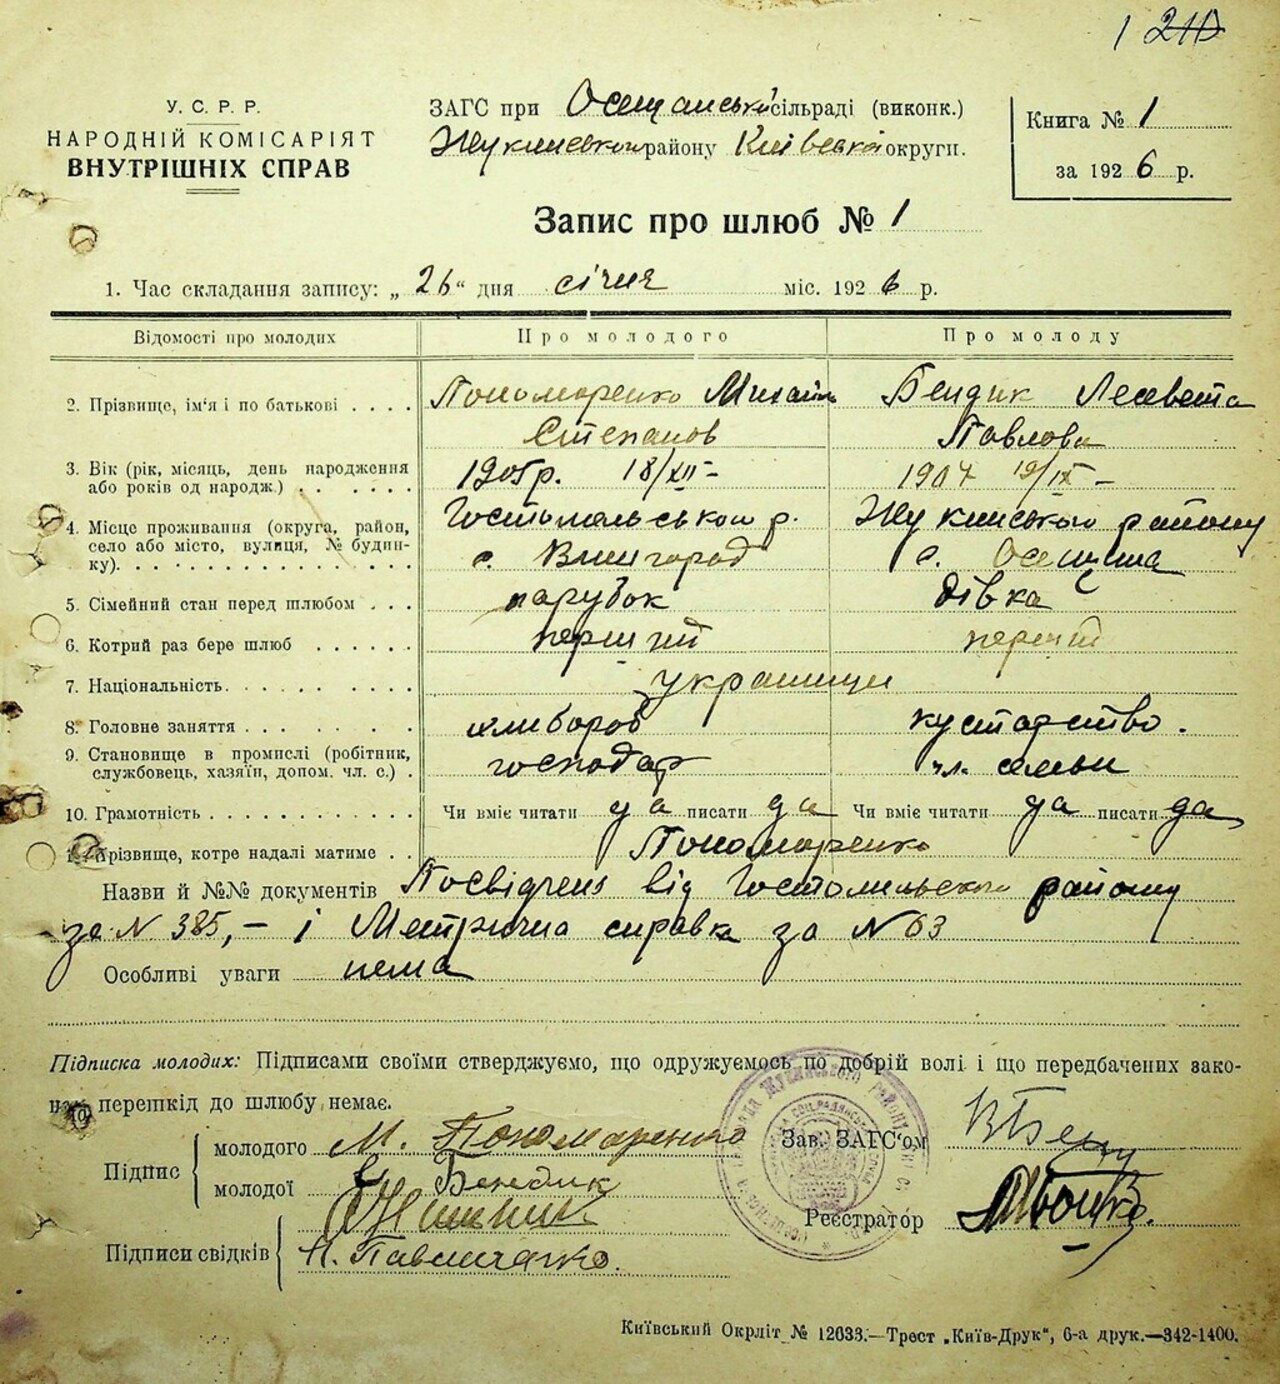 1
У. С. Р. Р.
НАРОДНІЙ КОМІСАРІЯТ
ВНУТРІШНІХ СПРАВ
ЗАГС при Осещанській сільраді (виконк.)
Жукинського району Київської округи.
Книга № 1
за 1926 р.
Запис про шлюб № 1
1. Час складання запису: „26“ дня січня міс. 1926 р.
Відомості про молодих Про молодого Про молоду
2. Прізвище, ім'я і по батькові . . . . Пономаренко Михайло Бендик Лесавета
Степанов Павлова
3. Вік (рік, місяць, день народження 1905р. 18/XII – 1907 19/IX –
або років од народж.) . . . . . .
4. Місце проживання (округа, район, Гостомельського р. Жукинського району
село або місто, вулиця, № будин- с. Вишгород с. Осещина
ку). . . . . . . . . . . . . . .
5. Сімейний стан перед шлюбом . . . парубок дівка
6. Котрий раз бере шлюб . . . . . . перший перший
7. Національність. . . . . . . . . . українци
8. Головне заняття . . . . . . . . . хлибороб кустарство.
9. Становище в промислі (робітник, господар чл. семьи
службовець, хазяїн, допом. чл. с.) .
10. Грамотність . . . . . . . . . . . Чи вміє читати да писати да Чи вміє читати да писати да
Прізвище, котре надалі матиме . . Пономаренко
Назви й №№ документів Посвідчень від Гостомильського району
за N 385, – і Метрична справка за N 63
Особливі уваги нема
Підписка молодих: Підписами своїми стверджуємо, що одружуємось по добрій волі і що передбачених зако-
ном перешкід до шлюбу немає.
Підпис
молодого М. Пономаренко
молодої Є Бендик
Зав. ЗАГС'ом
Реєстратор
Підписи свідків
Н. Павличенко.
Київський Окрліт № 12633.—Трест „Київ-Друк“, 6-а друк.—342-1400.